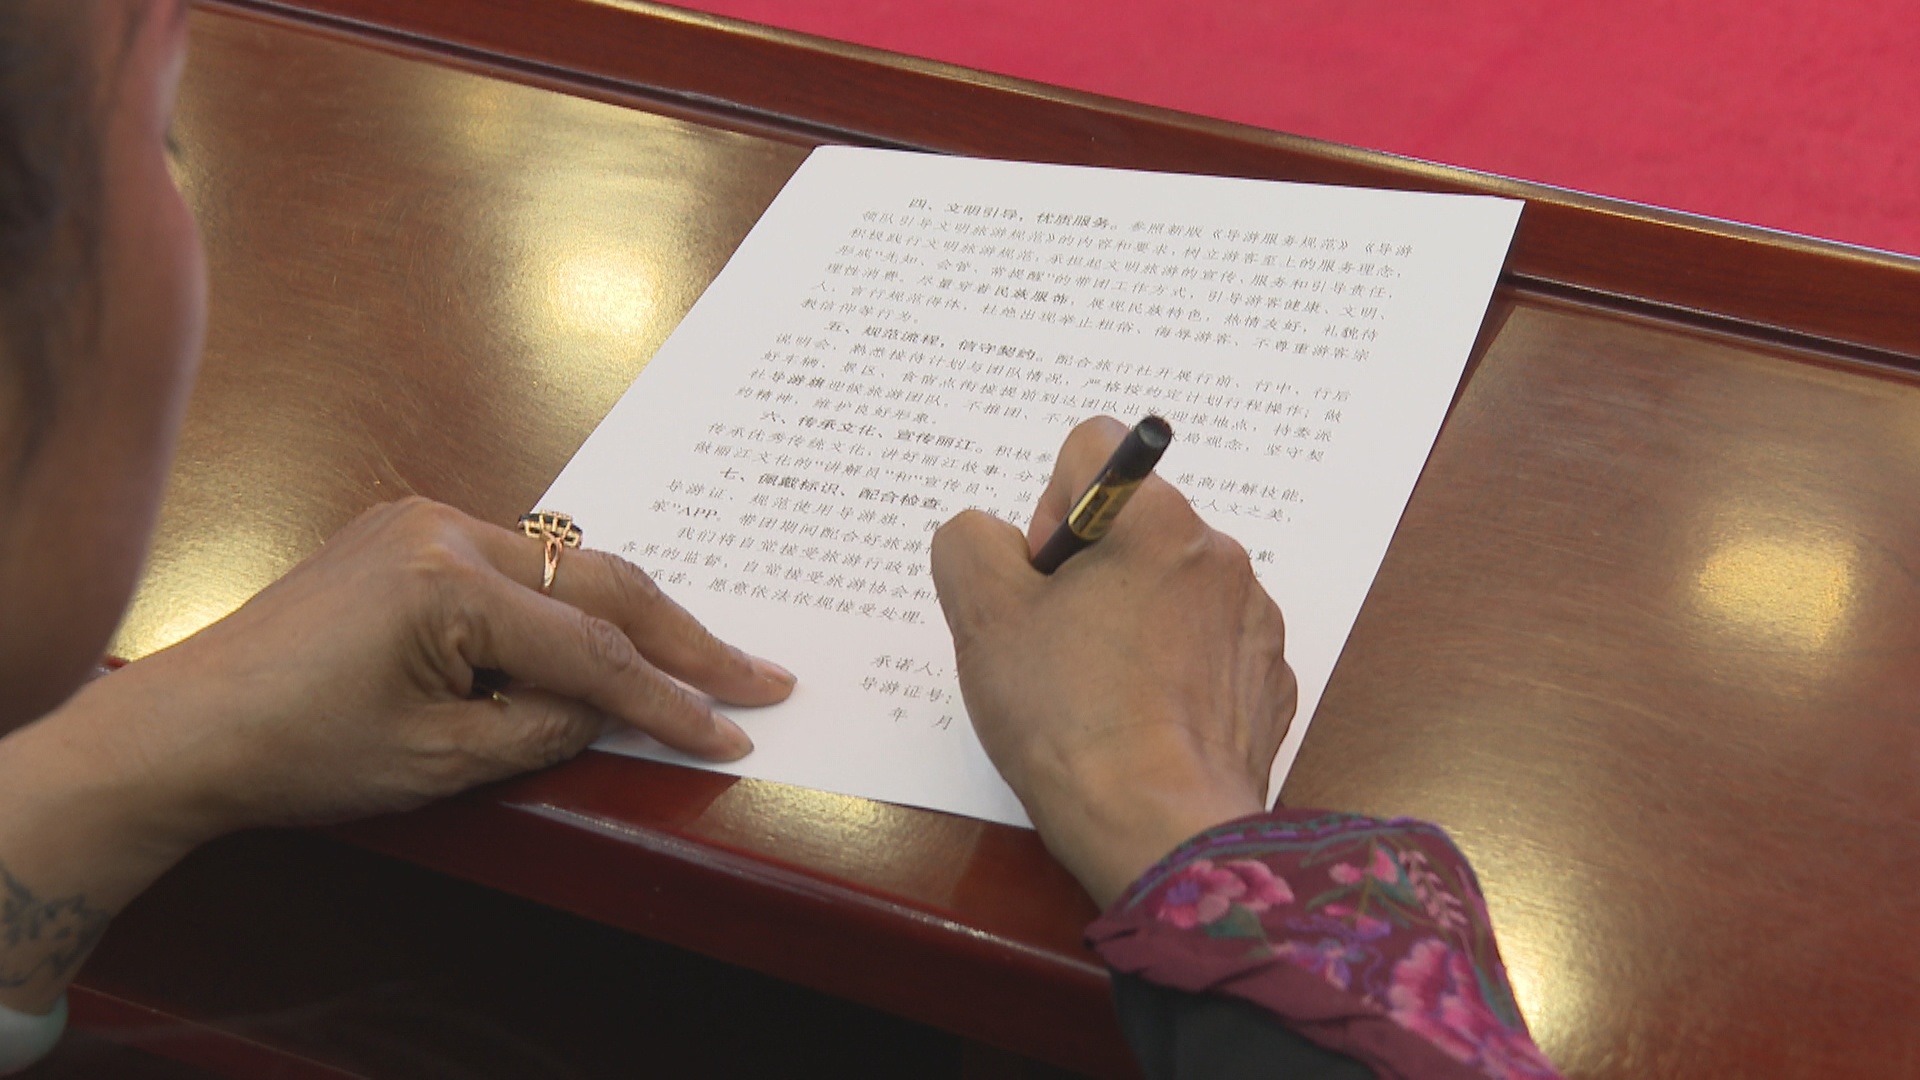 四、文明引导，优质服务。参照新版《导游服务规范》《导游
领队引导文明旅游规范》的内容和要求，树立游客至上的服务理念，
积极践行文明旅游规范，承担起文明旅游的宣传、服务和引导责任，
形成"先知、会管、常提醒"的带团工作方式，引导游客健康、文明、
理性消费。尽量穿着民族服饰，展现民族特色，热情友好，礼貌待
人，言行规范得体，杜绝出现举止粗俗、侮辱游客、不尊重游客宗
教信仰等行为。
五、规范流程，信守契约。配合旅行社开展行前、行中、行后
说明会，熟悉接待计划与团队情况，严格按约定计划行程操作；做
好车辆、景区、食宿点衔接提前到达团队出发/迎接地点，持委派
社导游旗迎候旅游团队，不推团、不甩 大局观念，坚守契
约精神，维护良好形象。
六、传承文化、宣传丽江。积极参 提高讲解技能，
传承优秀传统文化，讲好丽江故事，分享 水人文之美，
做丽江文化的"讲解员"和"宣传员"，当
七、佩戴标识、配合检查。 导游 戴
导游证、规范使用导游旗、携
家"APP。带团期间配合好旅游
我们将自觉接受旅游行政管
各界的监督，自觉接受旅游协会和
承诺，愿意依法依规接受处理。
承诺人：
导游证号：
年 月